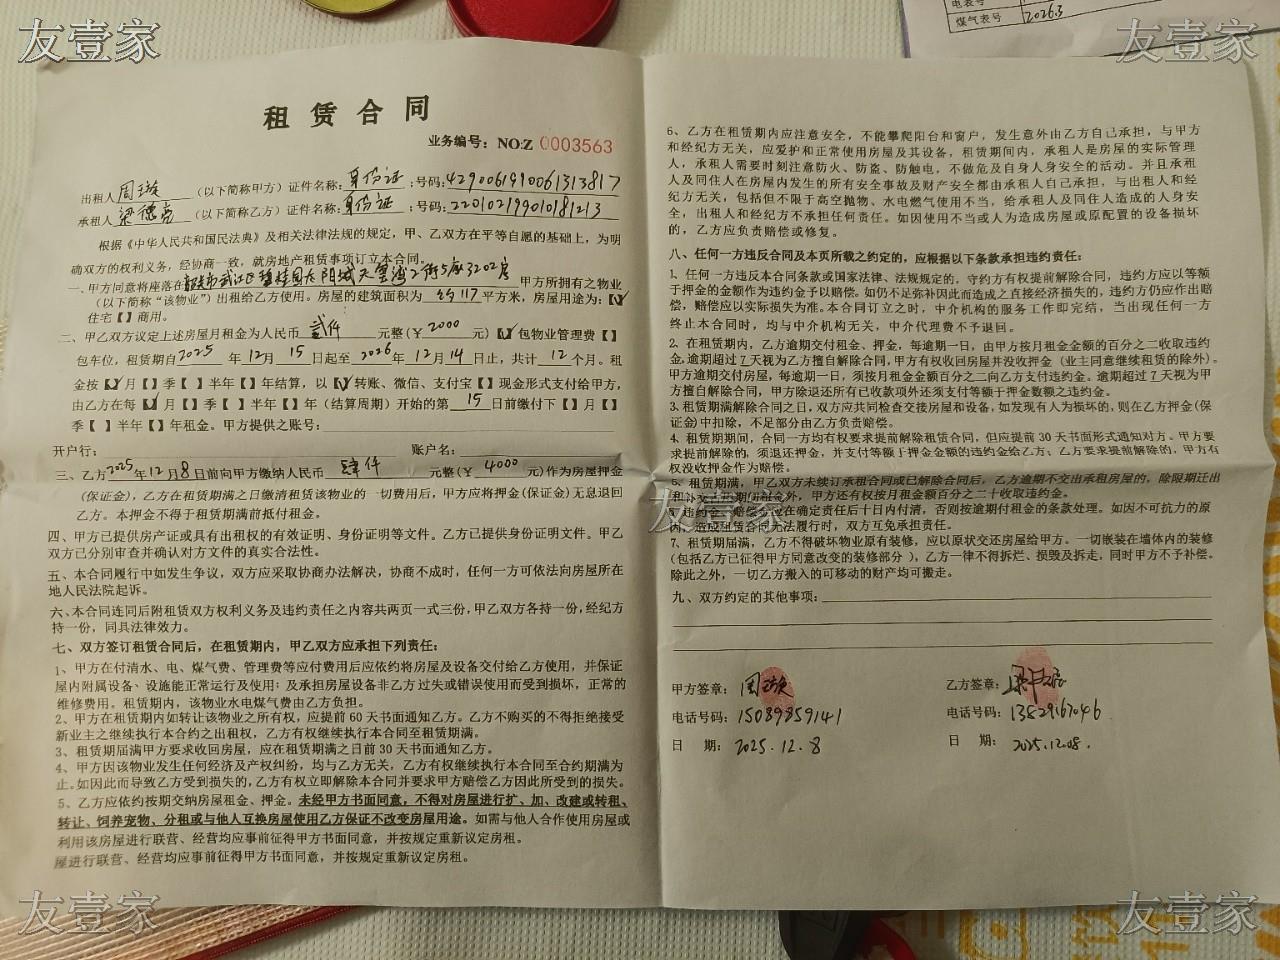 友壹家
友壹家
煤气表号 2026.3
租赁合同
业务编号：NO:Z 0003563
出租人周璇（以下简称甲方）证件名称：身份证；号码：4290061990061313817
承租人梁德富（以下简称乙方）证件名称：身份证；号码：220102199010181213
根据《中华人民共和国民法典》及相关法律法规的规定，甲、乙双方在平等自愿的基础上，为明
确双方的权利义务，经协商一致，就房地产租赁事项订立本合同。
一、甲方同意将座落在韶关市武江区碧桂园太阳城天墅湾2街5座3202房 甲方所拥有之物业
（以下简称“该物业”）出租给乙方使用。房屋的建筑面积为 约117平方米，房屋用途为：【✓】
住宅【】商用。
二、甲乙双方议定上述房屋月租金为人民币 贰仟 元整(￥2000 元)【✓】包物业管理费【】
包车位，租赁期自2025年12月15日起至2026年12月14日止，共计12个月。租
金按【✓】月【】季【】半年【】年结算，以【✓】转账、微信、支付宝【】现金形式支付给甲方，
由乙方在每【✓】月【】季【】半年【】年（结算周期）开始的第15日前缴付下【】月【】
季【】半年【】年租金。甲方提供之账号：
开户行： 账户名：
三、乙方2025年12月8日前向甲方缴纳人民币 肆仟 元整(￥4000元)作为房屋押金
(保证金)，乙方在租赁期满之日缴清租赁该物业的一切费用后，甲方应将押金(保证金)无息退回
乙方。本押金不得于租赁期满前抵付租金。
四、甲方已提供房产证或具有出租权的有效证明、身份证明等文件。乙方已提供身份证明文件。甲乙
双方已分别审查并确认对方文件的真实合法性。
五、本合同履行中如发生争议，双方应采取协商办法解决，协商不成时，任何一方可依法向房屋所在
地人民法院起诉。
六、本合同连同后附租赁双方权利义务及违约责任之内容共两页一式三份，甲乙双方各持一份，经纪方
持一份，同具法律效力。
七、双方签订租赁合同后，在租赁期内，甲乙双方应承担下列责任：
1、甲方在付清水、电、煤气费、管理费等应付费用后应依约将房屋及设备交付给乙方使用，并保证
屋内附属设备、设施能正常运行及使用；及承担房屋设备非乙方过失或错误使用而受到损坏，正常的
维修费用。租赁期内，该物业水电煤气费由乙方负担。
2、甲方在租赁期内如转让该物业之所有权，应提前60天书面通知乙方。乙方不购买的不得拒绝接受
新业主之继续执行本合约之出租权，乙方有权继续执行本合同至租赁期满。
3、租赁期届满甲方要求收回房屋，应在租赁期满之日前30天书面通知乙方。
4、甲方因该物业发生任何经济及产权纠纷，均与乙方无关，乙方有权继续执行本合同至合约期满为
止。如因此而导致乙方受到损失的，乙方有权立即解除本合同并要求甲方赔偿乙方因此所受到的损失。
5、乙方应依约按期交纳房屋租金、押金。未经甲方书面同意，不得对房屋进行扩、加、改建或转租、
转让、饲养宠物、分租或与他人互换房屋使用乙方保证不改变房屋用途。如需与他人合作使用房屋或
利用该房屋进行联营、经营均应事前征得甲方书面同意，并按规定重新议定房租。
屋进行联营、经营均应事前征得甲方书面同意，并按规定重新议定房租。
6、乙方在租赁期内应注意安全，不能攀爬阳台和窗户，发生意外由乙方自己承担，与甲方
和经纪方无关，应爱护和正常使用房屋及其设备，租赁期间内，承租人是房屋的实际管理
人，承租人需要时刻注意防火、防盗、防触电，不做危及自身人身安全的活动。并且承租
人及同住人在房屋内发生的所有安全事故及财产安全都由承租人自己承担，与出租人和经
纪方无关，包括但不限于高空抛物、水电燃气使用不当，给承租人及同住人造成的人身安
全，出租人和经纪方不承担任何责任。如因使用不当或人为造成房屋或原配置的设备损坏
的，乙方应负责赔偿或修复。
八、任何一方违反合同及本页所载之约定的，应根据以下条款承担违约责任：
1、任何一方违反本合同条款或国家法律、法规规定的，守约方有权提前解除合同，违约方应以等额
于押金的金额作为违约金予以赔偿。如仍不足弥补因此而造成之直接经济损失的，违约方仍应作出赔
偿，赔偿应以实际损失为准。本合同订立之时，中介机构的服务工作即完结，当出现任何一方
终止本合同时，均与中介机构无关，中介代理费不予退回。
2、在租赁期内，乙方逾期交付租金、押金，每逾期一日，由甲方按月租金金额的百分之二收取违约
金，逾期超过7天视为乙方擅自解除合同，甲方有权收回房屋并没收押金（业主同意继续租赁的除外）。
甲方逾期交付房屋，每逾期一日，须按月租金金额百分之二向乙方支付违约金。逾期超过7天视为甲
方擅自解除合同，甲方除退还所有已收款项外还须支付等额于押金数额之违约金。
3、租赁期满解除合同之日，双方应共同检查交接房屋和设备，如发现有人为损坏的，则在乙方押金(保
证金)中扣除，不足部分由乙方负责赔偿。
4、租赁期期间，合同一方均有权要求提前解除租赁合同，但应提前30天书面形式通知对方。甲方要
求提前解除的，须退还押金，并支付等额于押金金额的违约金给乙方；乙方要求提前解除的，甲方有
权没收押金作为赔偿。
5、租赁期满，甲乙双方未续订承租合同或已解除合同后，乙方逾期不交出承租房屋的，除限期迁出
和补交占用期间租金外，甲方还有权按月租金金额百分之二十收取违约金。
6、违约金、赔偿金应在确定责任后十日内付清，否则按逾期付租金的条款处理。如因不可抗力的原
因，造成租赁合同无法履行时，双方互免承担责任。
7、租赁期届满，乙方不得破坏物业原有装修，应以原状交还房屋给甲方。一切嵌装在墙体内的装修
(包括乙方已征得甲方同意改变的装修部分)，乙方一律不得拆烂、损毁及拆走，同时甲方不予补偿。
除此之外，一切乙方搬入的可移动的财产均可搬走。
九、双方约定的其他事项：
甲方签章：周璇
电话号码：15089859141
日 期：2025.12.8
乙方签章：
电话号码：13829167046
日 期：2025.12.08.
友壹家
友壹家
友壹家